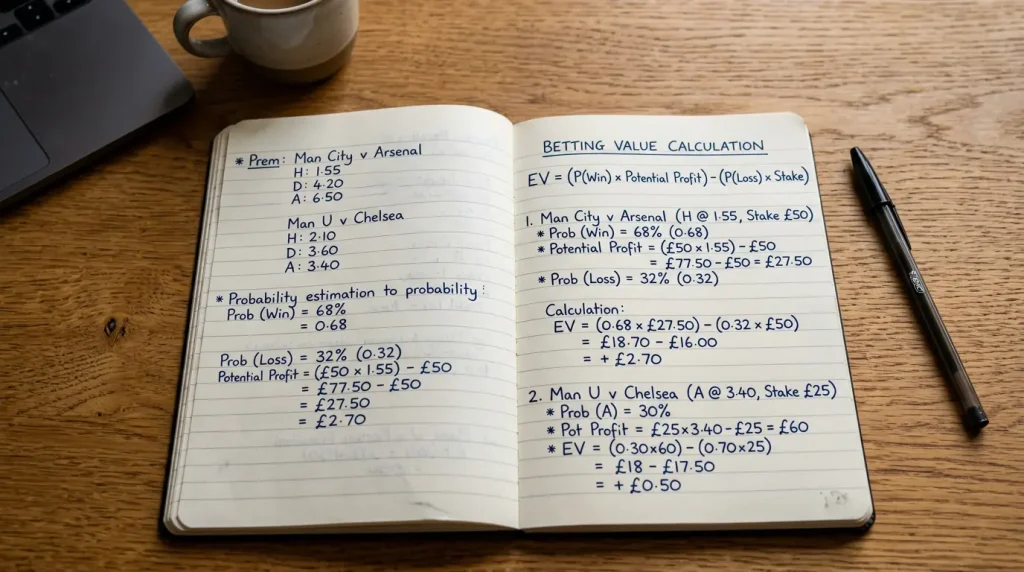 * Prem: Man City v Arsenal
H: 1·55
D: 4·20
A: 6·50
Man U v Chelsea
H: 2·10
D: 3·60
A: 3·40
* Probability estimation to probability:
Prob (Win) = 68%
= 0·68
Prob (Loss) = 32% (0·32)
Potential Profit = (£50 x 1·55) - £50
= £77·50 - £50
= £27·50
= £2·70
BETTING VALUE CALCULATION
EV = (P(Win) x Potential Profit) - (P(Loss) x Stake)
1. Man City v Arsenal (H @ 1·55, Stake £50)
* Prob (Win) = 68% (0·68)
* Potential Profit = (£50 x 1·55) - £50
= £77·50 - £50 = £27·50
* Prob (Loss) = 32% (0·32)
Calculation:
EV = (0·68 x £27·50) - (0·32 x £50)
= £18·70 - £16·00
= + £2·70
2. Man U v Chelsea (A @ 3·40, Stake £25)
* Prob (A) = 30%
* Pot Profit = £25x3·40 - £25 = £60
* EV = (0·30x60) - (0·70x25)
= £18 - £17·50
= + £0·50